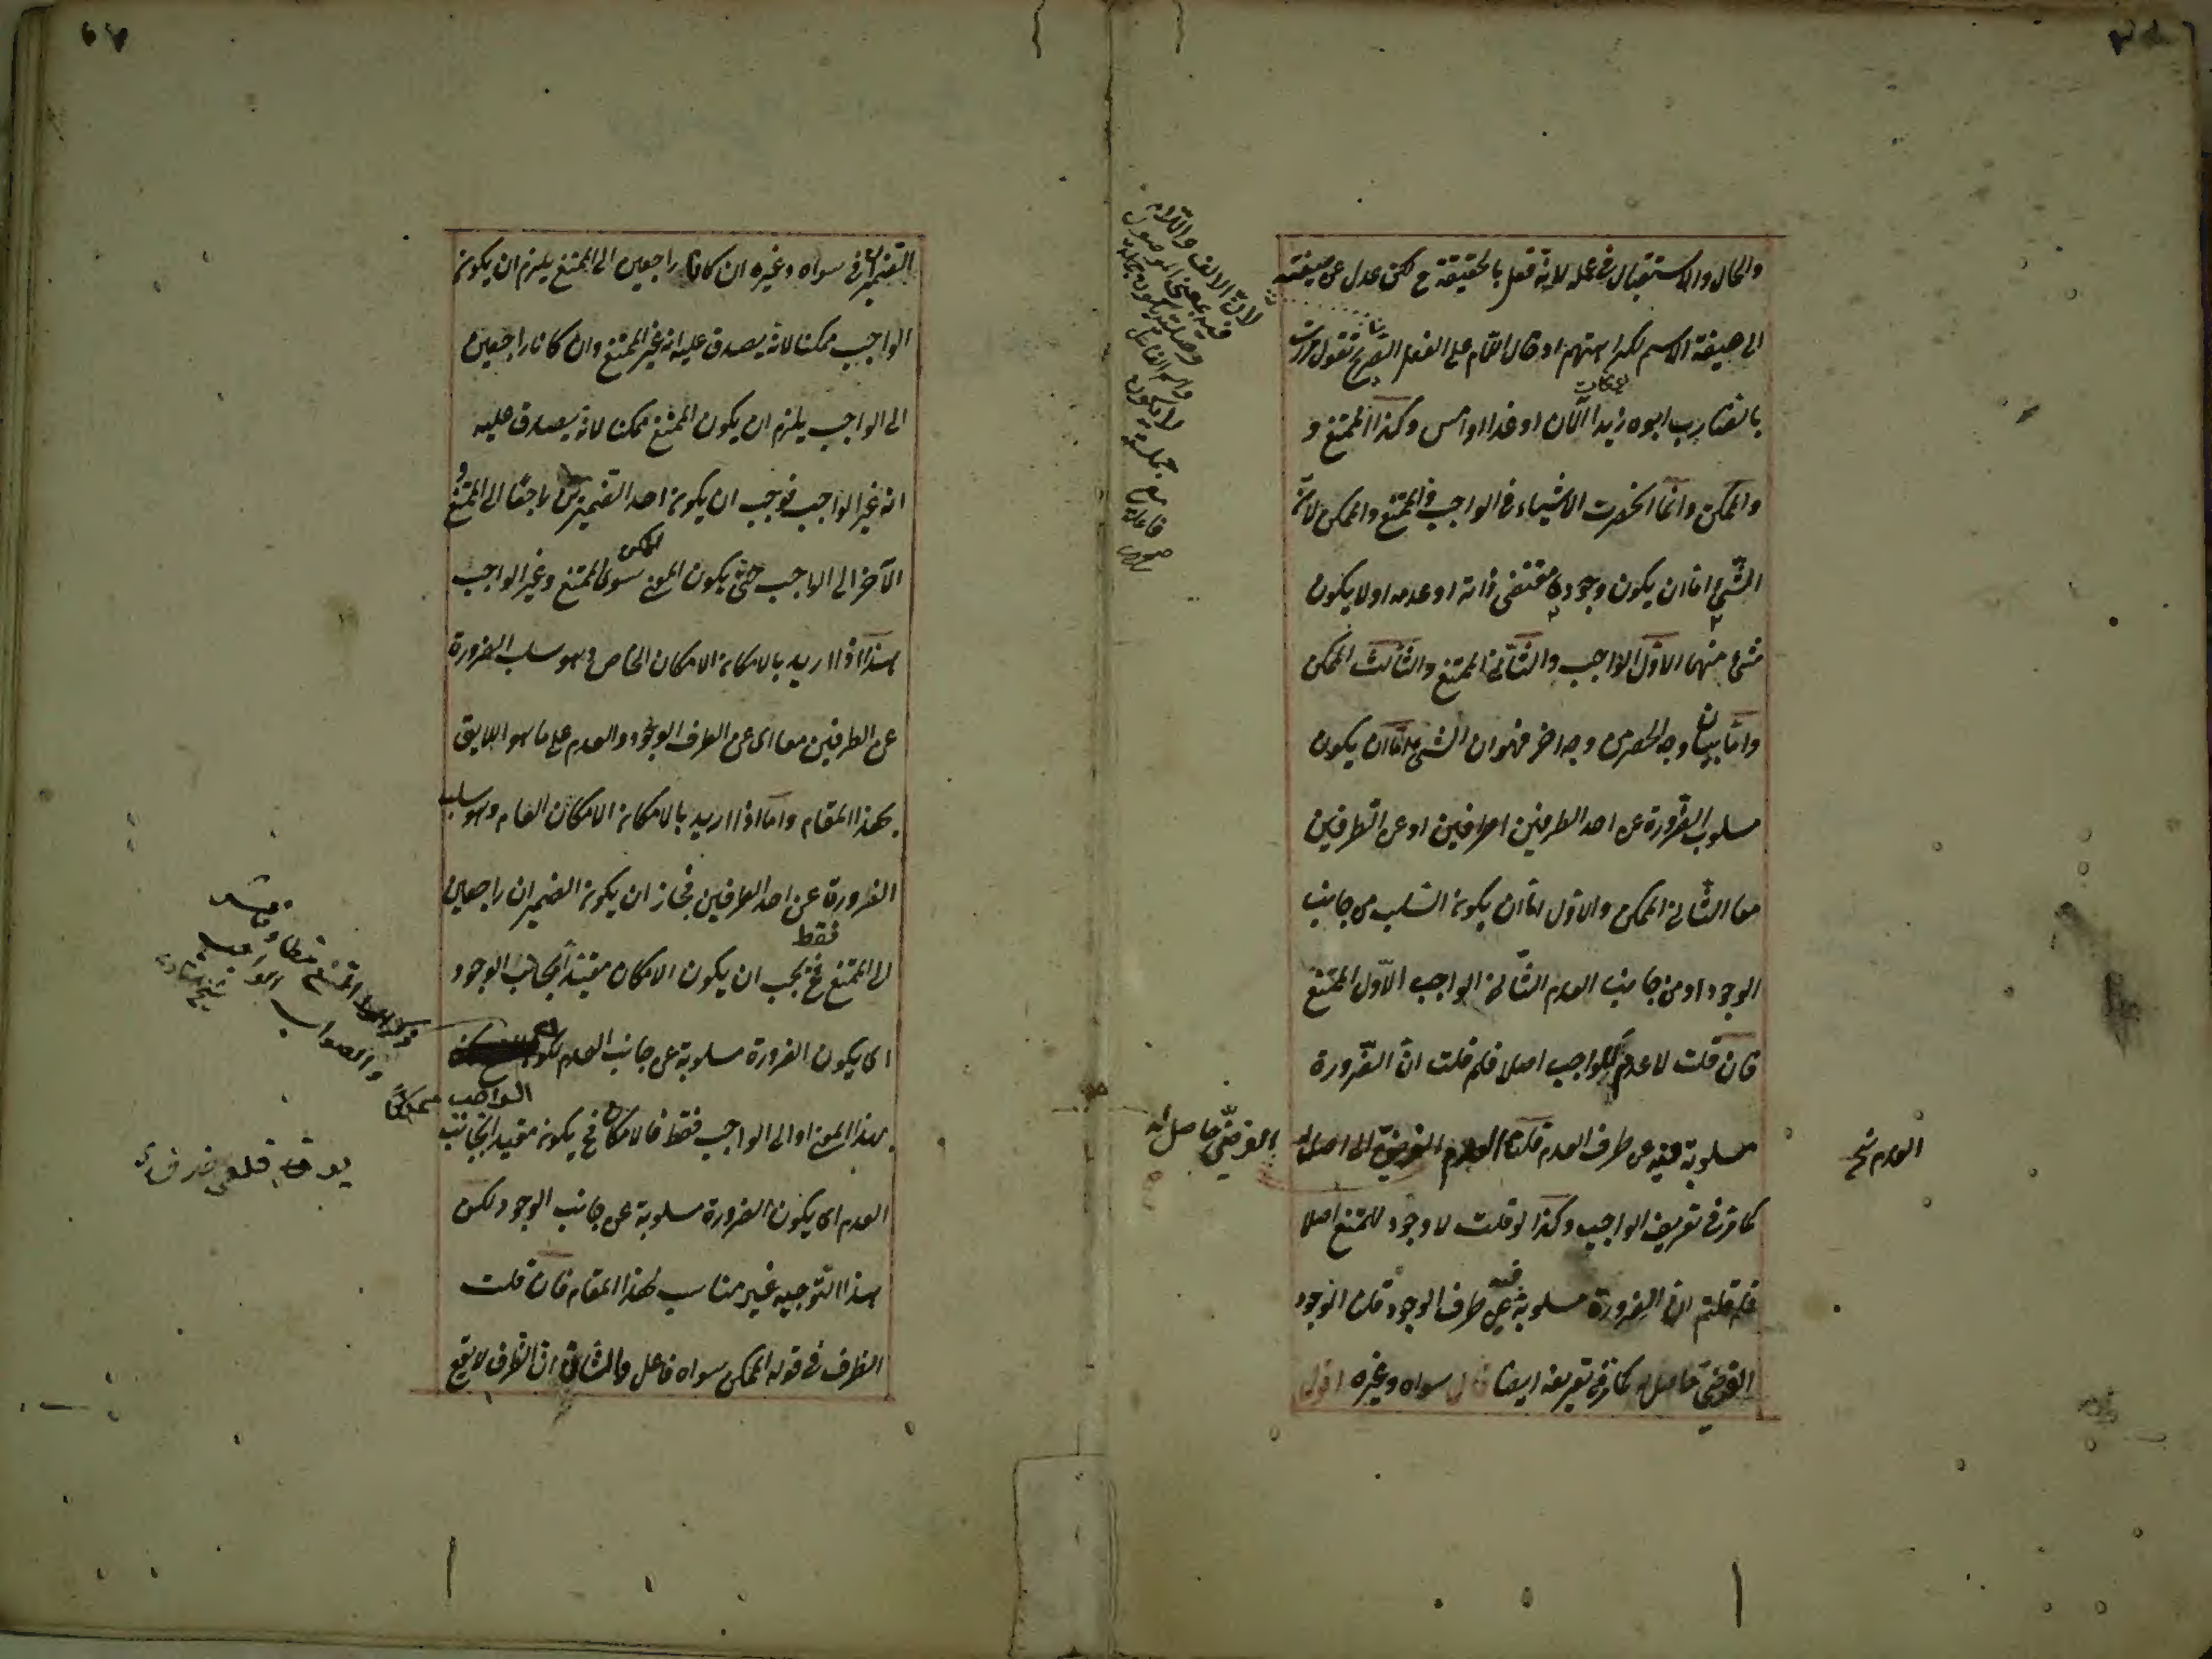 والحال والاستقبال فى عمله لانه فعل بالحقيقة ح لكن عدل عن صيغته
الى صيغة الاسم لكراهتهم ادخال اللام على الفعل الصريح تقول مررت
بالضارب ابوه زيدا الآن او غدا او امس وكذا الممتنع و
والممكن وانما انحصرت الاشياء فى الواجب والممتنع والممكن لانه
الشئ اما ان يكون وجوده مقتضى ذاته او عدمه او لا يكون
شئ منهما الاول الواجب والثانى الممتنع والثالث الممكن
واما بيان وجه الحصر من وجه اخر فهو ان الشئ اما ان يكون
مسلوب الضرورة عن احد الطرفين او عن الطرفين
معا الثانى الممكن والاول اما ان يكون السلب من جانب
الوجود او من جانب العدم الثانى الواجب الاول الممتنع
فان قلت لا عدم للواجب اصلا فلم قلت ان الضرورة
مسلوبة فيه عن طرف العدم قلنا العدم الفرضى حاصل له
كما مر فى تعريف الواجب وكذا لو قلت لا وجود للممتنع اصلا
فلم قلتم ان الضرورة مسلوبة فيه عن طرف الوجود قلت الوجود
الفرضى حاصل له كما مر فى تعريفه ايضا قال سواه وغيره اقول
لان الالف واللام
فيه بمعنى الموصول
وصلته يكون جملة
واسم الفاعل
لا يكون
جملة
مع
فاعله
الفرضى حاصل له
العدم صح
الضميران فى سواه وغيره ان كانا راجعين الى الممتنع يلزم ان يكون
الواجب ممكنا لانه يصدق عليه انه غير الممتنع وان كانا راجعين
الى الواجب يلزم ان يكون الممتنع ممكنا لانه يصدق عليه
انه غير الواجب فوجب ان يكون احد الضميرين راجعا الى الممتنع و
الآخر الى الواجب حتى يكون المعنى الممكن سوى الممتنع وغير الواجب
هذا اذا اريد بالامكان الامكان الخاص وهو سلب الضرورة
عن الطرفين معا اى عن الطرف الوجود والعدم على ما هو اللايق
بهذا المقام واما اذا اريد بالامكان الامكان العام وهو سلب
الضرورة عن احد الطرفين فجاز ان يكون الضميران راجعين
الى الممتنع فقط فح يجب ان يكون الامكان مقيدا بجانب الوجود
اى يكون الضرورة مسلوبة عن جانب العدم ليكون
الواجب ممكنا
بهذا المعنى او الى الواجب فقط فالامكان ح يكون مقيدا بجانب
العدم اى يكون الضرورة مسلوبة عن جانب الوجود لكن
هذا التوجيه غير مناسب لهذا المقام فان قلت
الظرف فى قوله الممكن سواه فاعل والثانى ان الظرف لا يقع
والصواب